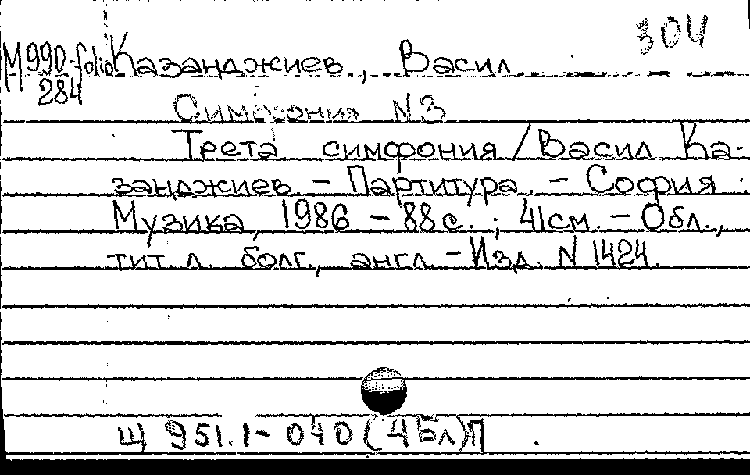 304
М990-folio Казанджиев, Васил
284
Симфония N3
Трета симфония / Васил Ка-
занджиев. - Партитура. - София :
Музика, 1986 - 88с. ; 41см. - Обл.,
тит л. болг., англ - Изд. N 1424.
Щ 951.1-040(4Бл)П